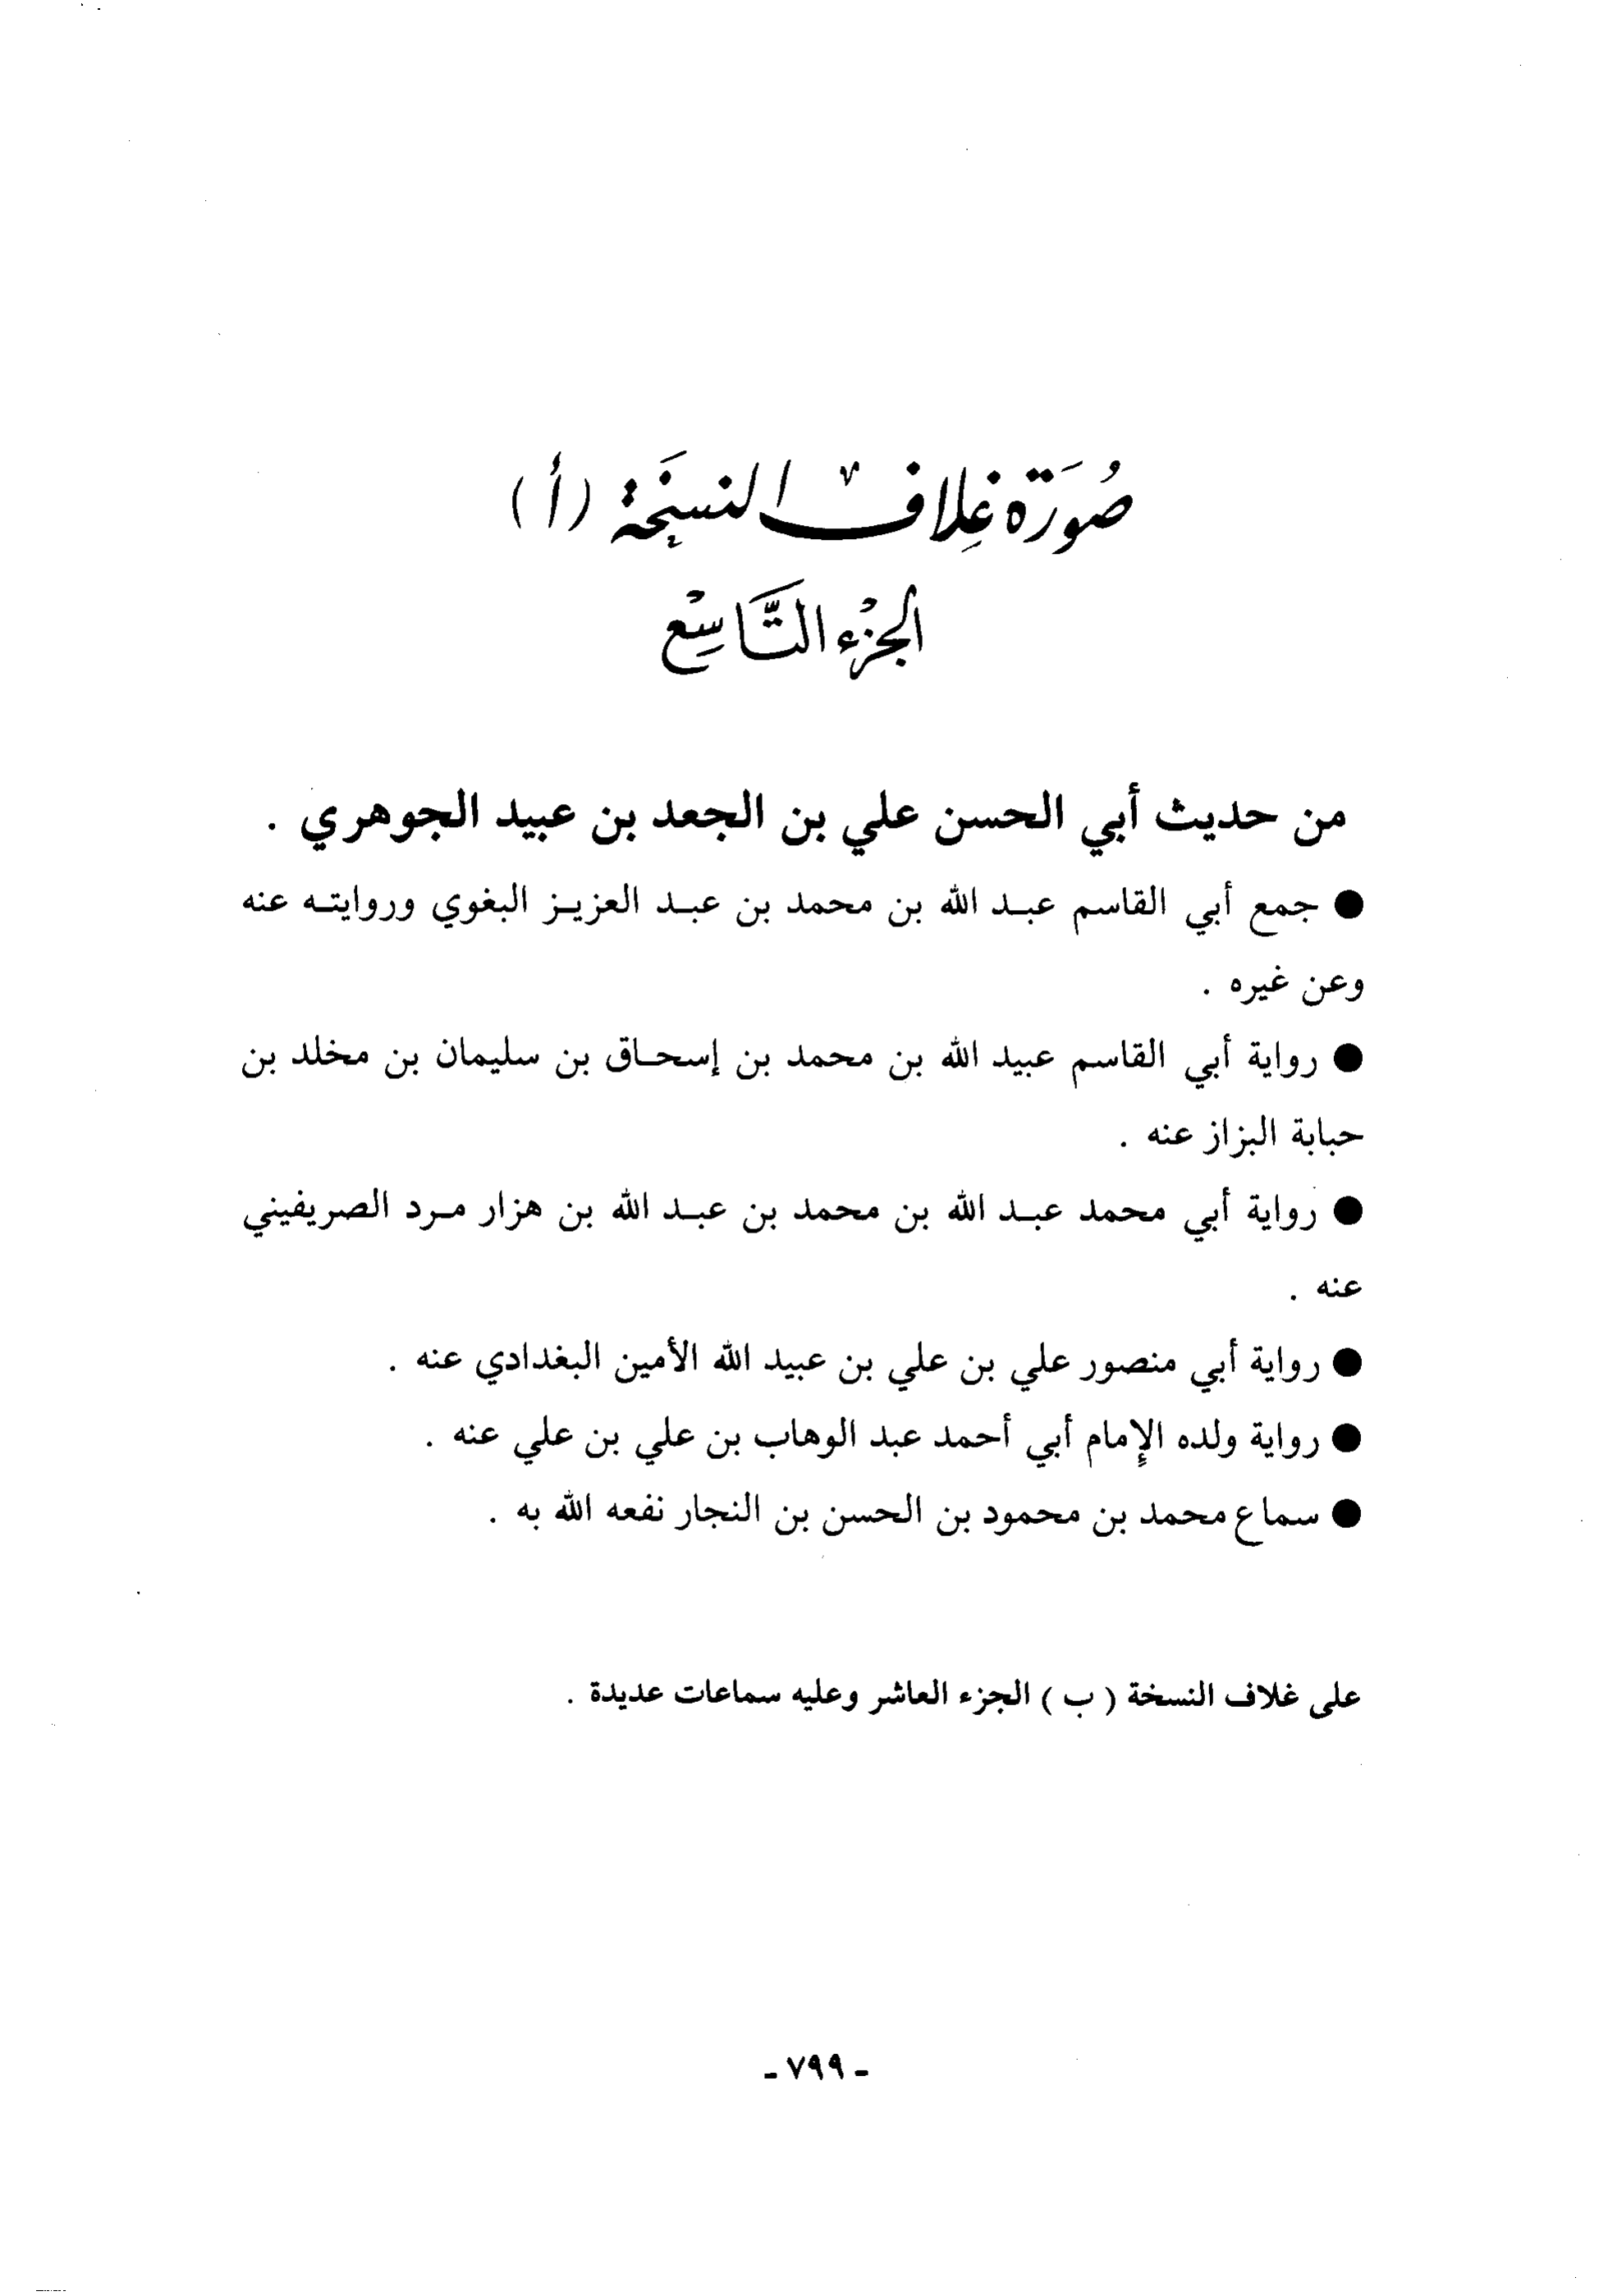 صُورَة غِلاف النسخَة (أ)
الجزْء التَّاسِعْ
من حديث أبي الحسن علي بن الجعد بن عبيد الجوهري .
● جمع أبي القاسم عبد الله بن محمد بن عبد العزيز البغوي وروايته عنه
وعن غيره .
● رواية أبي القاسم عبيد الله بن محمد بن إسحاق بن سليمان بن مخلد بن
حبابة البزاز عنه .
● رواية أبي محمد عبد الله بن محمد بن عبد الله بن هزار مرد الصريفيني
عنه .
● رواية أبي منصور علي بن علي بن عبيد الله الأمين البغدادي عنه .
● رواية ولده الإمام أبي أحمد عبد الوهاب بن علي بن علي عنه .
● سماع محمد بن محمود بن الحسن بن النجار نفعه الله به .
على غلاف النسخة ( ب ) الجزء العاشر وعليه سماعات عديدة .
- ٧٩٩ -